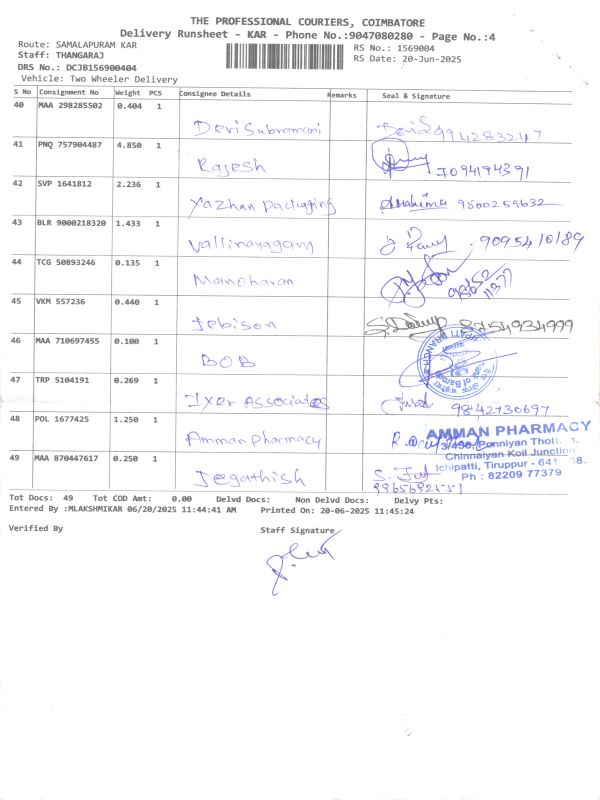 THE PROFESSIONAL COURIERS, COIMBATORE
Delivery Runsheet - KAR - Phone No.:9047080280 - Page No.:4
Route: SAMALAPURAM KAR
Staff: THANGARAJ
DRS No.: DCJB156900404
Vehicle: Two Wheeler Delivery
RS No.: 1569004
RS Date: 20-Jun-2025
S No Consignment No Weight PCS Consignee Details Remarks Seal & Signature
40 MAA 298285502 0.404 1
Devi Subramani
41 PNQ 757904487 4.850 1
Rajesh 7094194391
42 SVP 1641812 2.236 1
Yazhan packaging 9800259632
43 BLR 9000218320 1.433 1
Vallinayagam 9095410189
44 TCG 50893246 0.135 1
Manoharan
45 VKM 557236 0.440 1
Jebison 8754934999
46 MAA 710697455 0.100 1
BOB
47 TRP 5104191 0.269 1
Ixer Associates 9842730697
48 POL 1677425 1.250 1
Amman Pharmacy
AMMAN PHARMACY
Ponniyan Thott
Chinnaiyan Koil Junction
Ichipatti, Tiruppur - 641
Ph : 82209 77379
49 MAA 870447617 0.250 1
Jegathish
Tot Docs: 49 Tot COD Amt: 0.00 Delvd Docs: Non Delvd Docs: Delvy Pts:
Entered By :MLAKSHMIKAR 06/20/2025 11:44:41 AM Printed On: 20-06-2025 11:45:24
Verified By Staff Signature